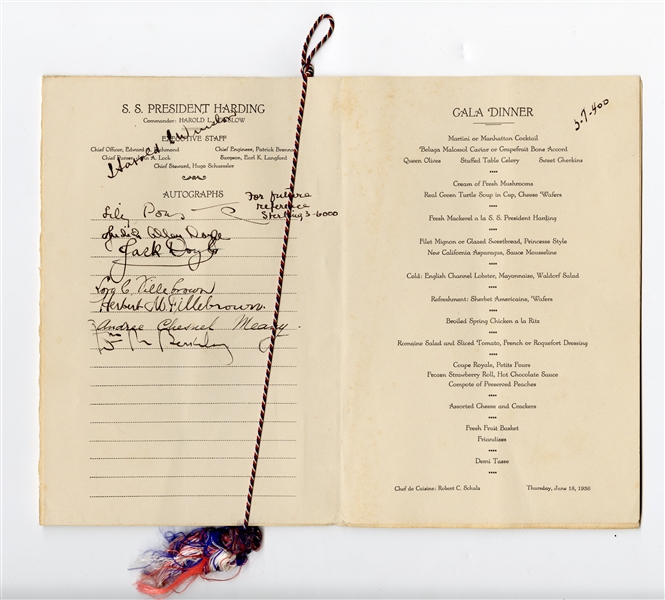 S. S. PRESIDENT HARDING
Commander: HAROLD L. WINSLOW
Harold L Winslow
EXECUTIVE STAFF
Chief Officer, Edward Richmond Chief Engineer, Patrick Brennan
Chief Purser, A. Lock Surgeon, Earl K. Langford
Chief Steward, Hugo Schuessler
AUTOGRAPHS
Lily Pons
For future
reference
Sterling 3-6000
Judith Allen Doyle
Jack Doyle
C. Villebrown
Herbert W. Tillebrown.
Andree Chesnel Meany.
Berkeley
GALA DINNER
3-7-400
Martini or Manhattan Cocktail
Beluga Malossol Caviar or Grapefruit Bone Accord
Queen Olives Stuffed Table Celery Sweet Gherkins
Cream of Fresh Mushrooms
Real Green Turtle Soup in Cup, Cheese Wafers
Fresh Mackerel a la S. S. President Harding
Filet Mignon or Glazed Sweetbread, Princesse Style
New California Asparagus, Sauce Mousseline
Cold: English Channel Lobster, Mayonnaise, Waldorf Salad
Refreshment: Sherbet Americaine, Wafers
Broiled Spring Chicken a la Ritz
Romaine Salad and Sliced Tomato, French or Roquefort Dressing
Coupe Royale, Petits Fours
Frozen Strawberry Roll, Hot Chocolate Sauce
Compote of Preserved Peaches
Assorted Cheese and Crackers
Fresh Fruit Basket
Friandises
Demi Tasse
Chef de Cuisine: Robert C. Schulz Thursday, June 18, 1936